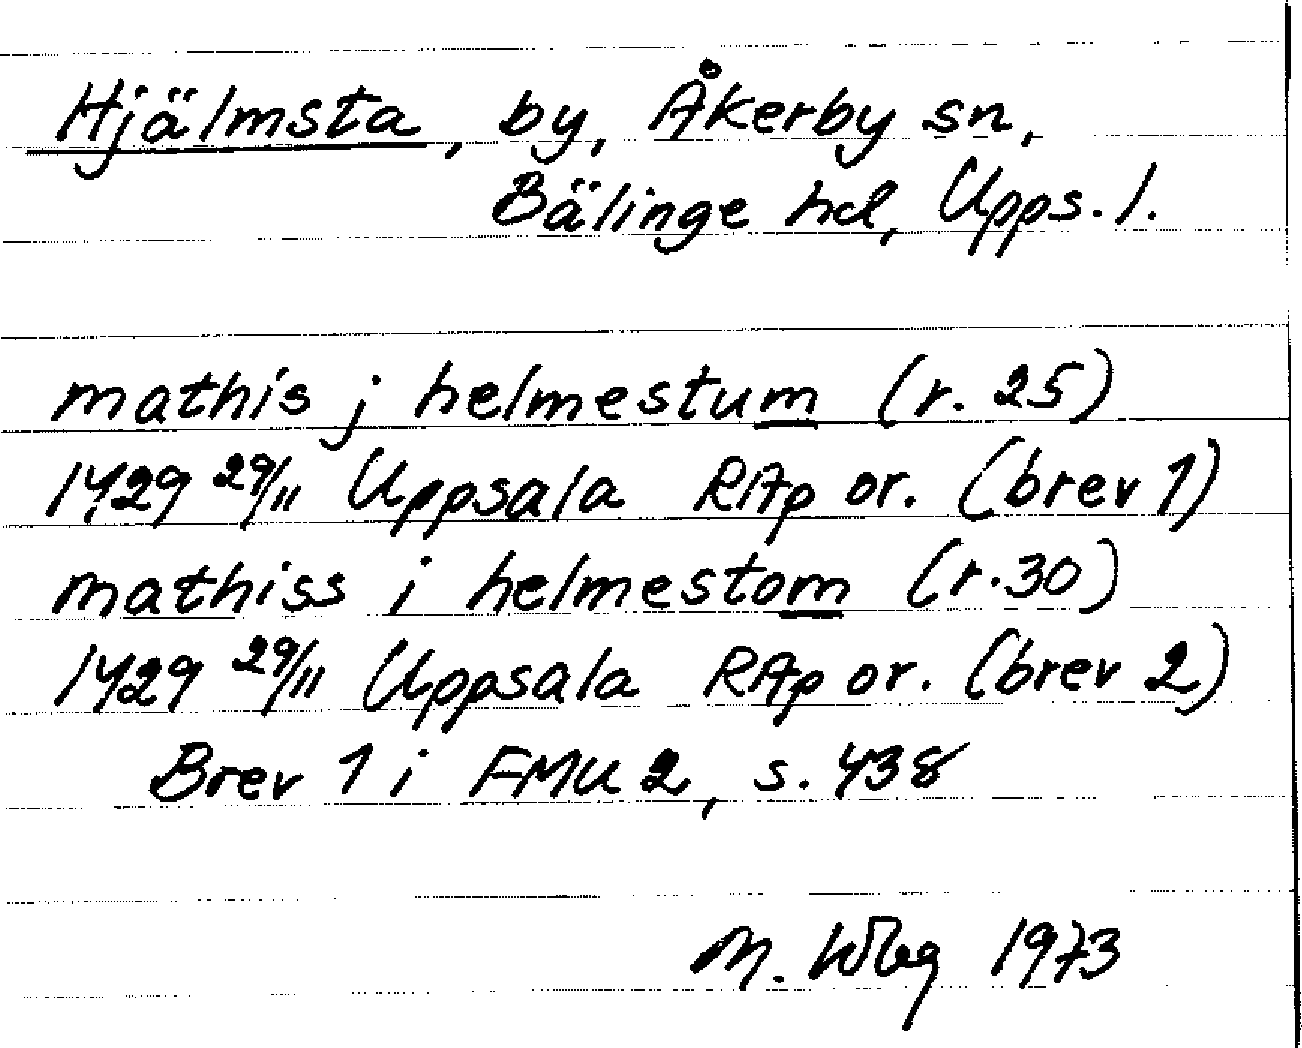 Hjälmsta, by, Åkerby sn,
Bälinge hd, Upps. l.
mathis j helmestum (r. 25)
1429 29/11 Uppsala RAp or. (brev 1)
mathiss i helmestom (r. 30)
1429 29/11 Uppsala RAp or. (brev 2)
Brev 1 i FMU 2, s. 438
M. Wbg 1973